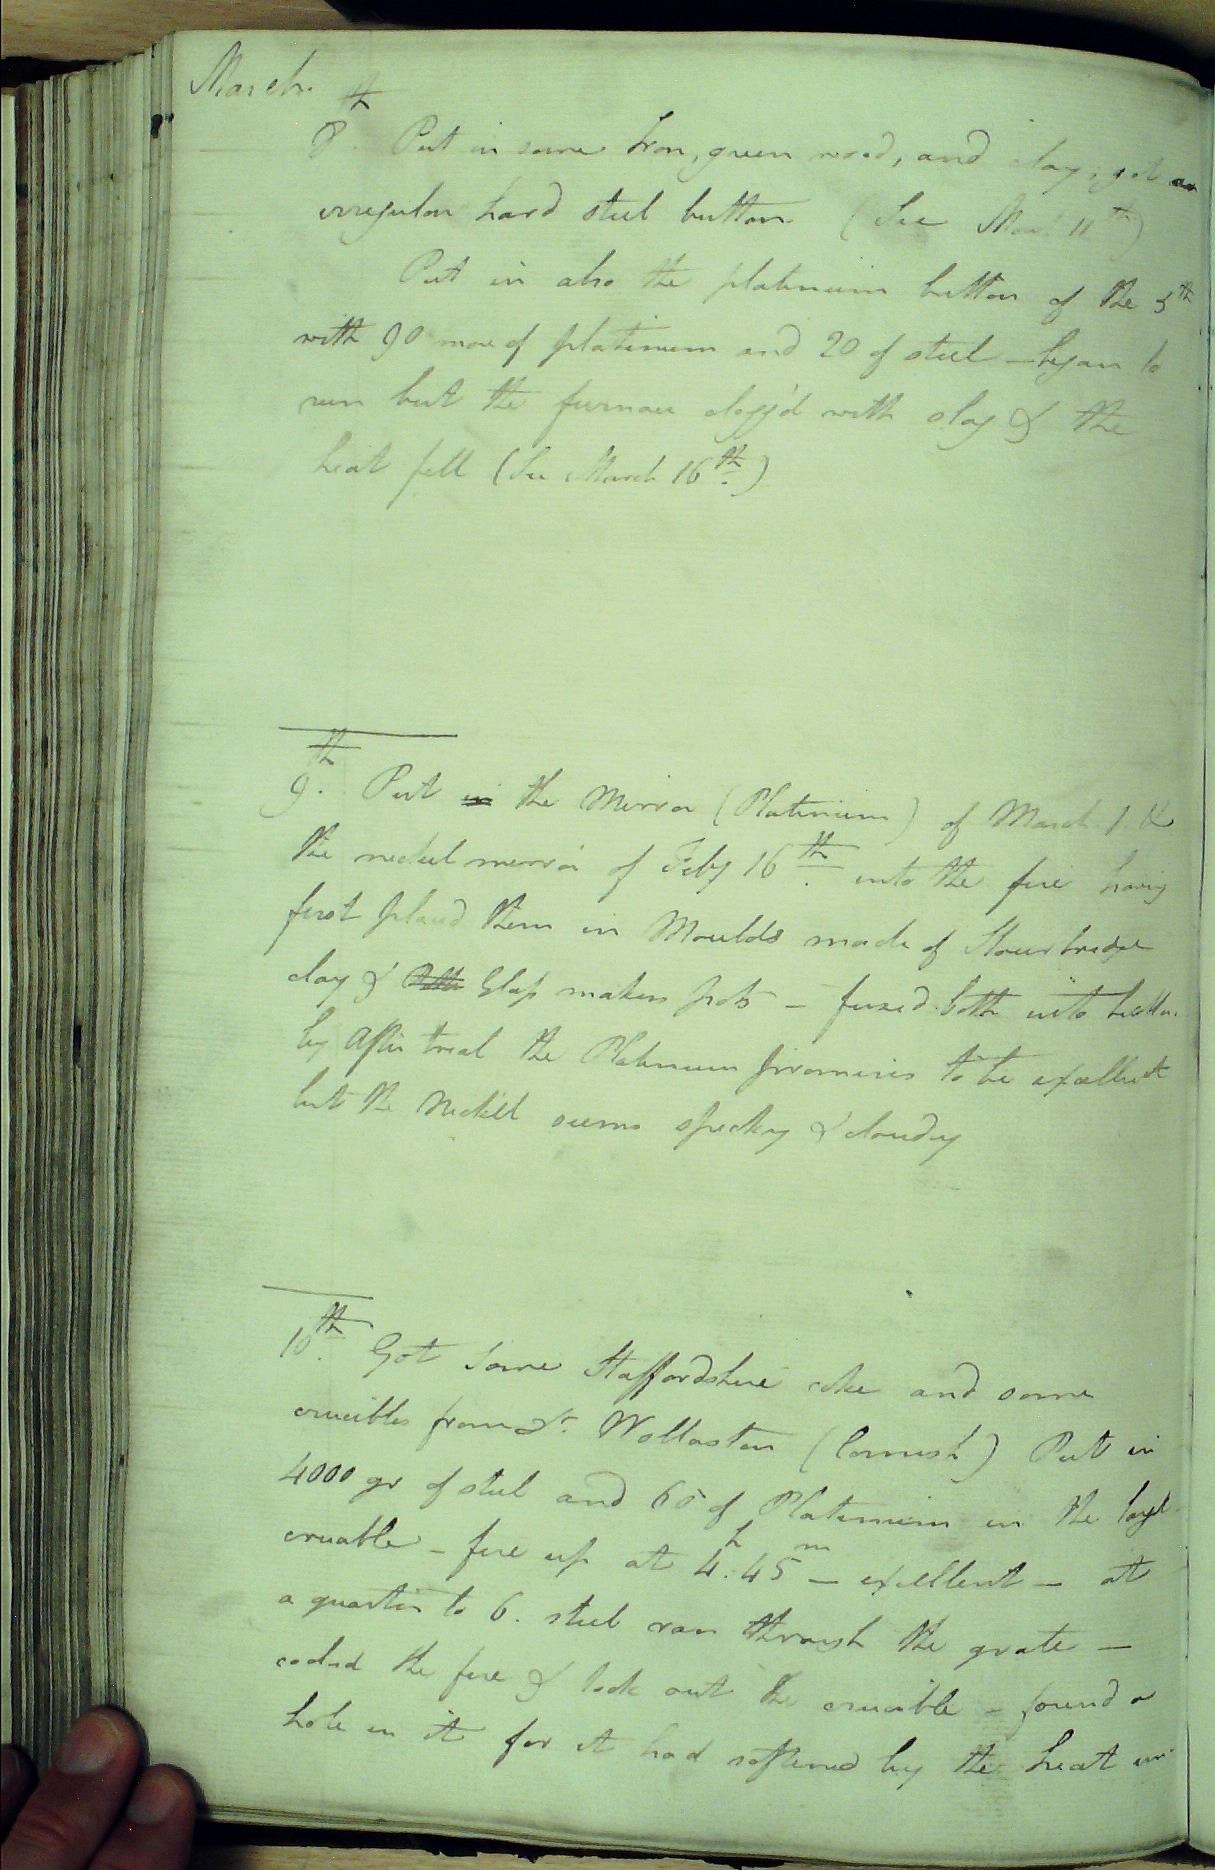 March.
8th. Put in some Iron, green wood, and clay, got an
irregular hard steel button (See March 11th)
Put in also the platinum button of the 5th
with 90 more of platinum and 20 of steel - began to
run but the furnace clogg'd with slag & the
heat fell (See March 16th.)
9th. Put in the Mirror (Platinum) of March 1. &
the nickel mirror of Feby 16th. into the fire having
first placed them in Moulds made of Stourbridge
clay & Glass makers pots - fuzed both into button
by after trial the Platinum promises to be excellent
but the Nickel seems specky & cloudy
10th. Got some Staffordshire coke and some
crucibles from Dr. Wollaston (Cornish) Put in
4000 gr of steel and 60 of Platinum in the large
crucible - fire up at 4h.45m - excellent - at
a quarter to 6. steel ran through the grate -
cooled the fire & took out the crucible - found a
hole in it for it had softened by the heat